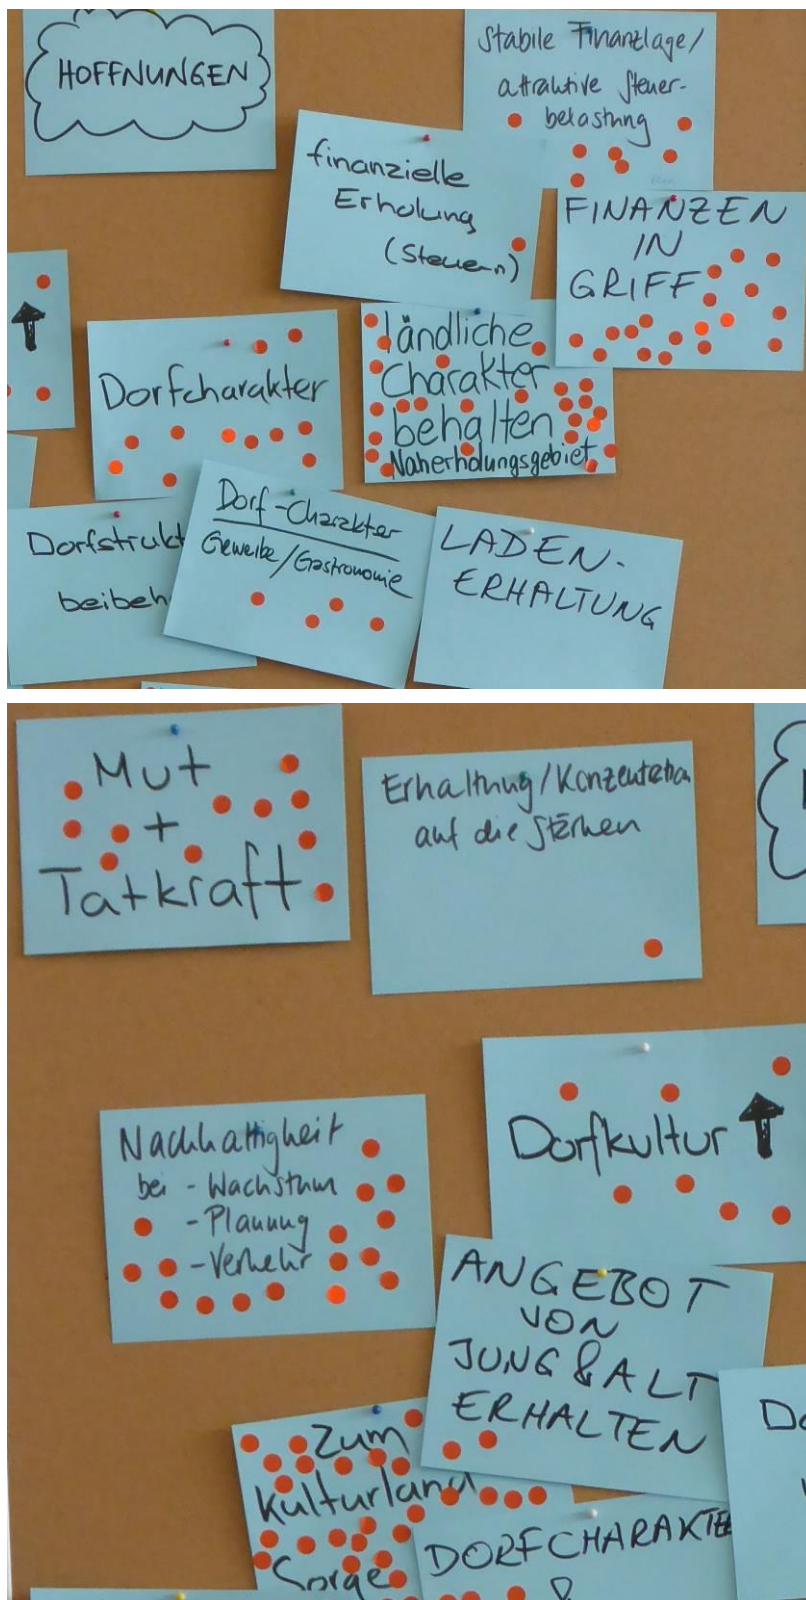 HOFFNUNGEN
Stabile Finanzlage/
attraktive Steuer-
belastung
finanzielle
Erholung
(Steuern)
FINANZEN
IN
GRIFF
Dorfcharakter
ländliche
Charakter
behalten
Naherholungsgebiet
Dorfstrukt
beibeh
Dorf-Charakter
Gewerbe/Gastronomie
LADEN-
ERHALTUNG
Mut
+
Tatkraft
Erhaltung/Konzentration
auf die Stärken
Nachhaltigkeit
bei - Wachstum
- Planung
- Verkehr
Dorfkultur
ANGEBOT
VON
JUNG & ALT
ERHALTEN
Zum
Kulturland
Sorge
DORFCHARAKTE
Do